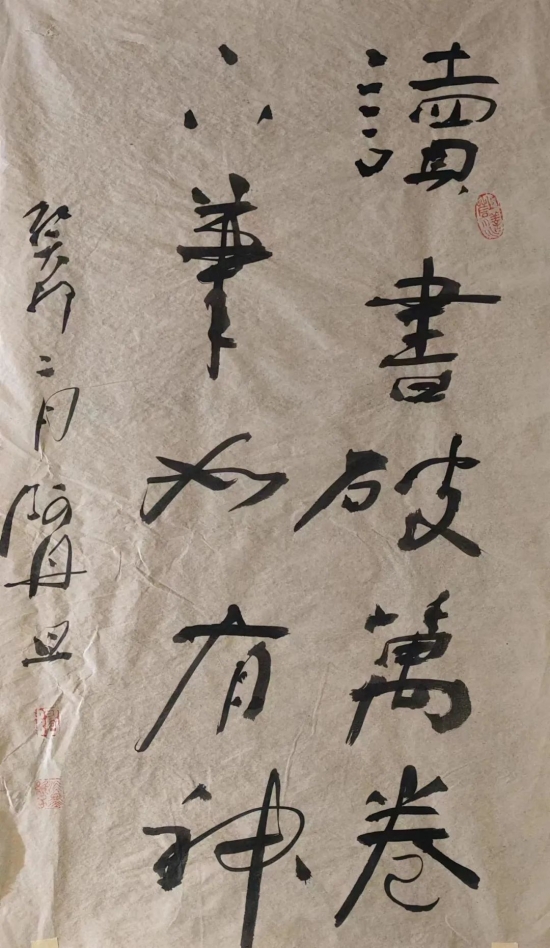 讀書破萬卷
下筆如有神
癸卯二月 阿丹